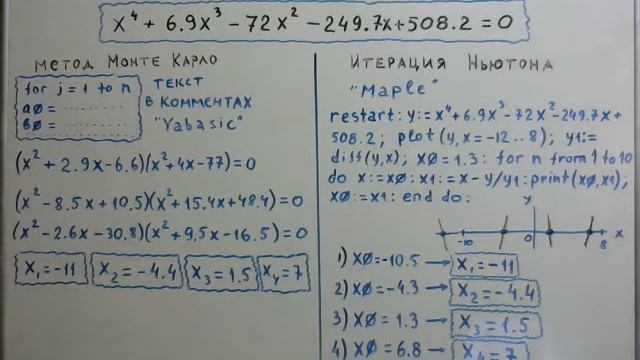 x⁴ + 6.9x³ - 72x² - 249.7x + 508.2 = 0
МЕТОД МОНТЕ КАРЛО
for j = 1 to n
a0 = ............
b0 = ............
ТЕКСТ
В КОММЕНТАХ
"Yabasic"
(x² + 2.9x - 6.6)(x² + 4x - 77) = 0
(x² - 8.5x + 10.5)(x² + 15.4x + 48.4) = 0
(x² - 2.6x - 30.8)(x² + 9.5x - 16.5) = 0
x₁ = -11 x₂ = -4.4 x₃ = 1.5 x₄ = 7
ИТЕРАЦИЯ НЬЮТОНА
"Maple"
restart: y:= x⁴ + 6.9x³ - 72x² - 249.7x +
508.2; plot(y, x = -12..8); y1:=
diff(y,x); x0 = 1.3: for n from 1 to 10
do x:= x0: x1:= x - y/y1: print(x0, x1);
x0:= x1: end do:
y
-10 0 8 x
1) x0 = -10.5 → x₁ = -11
2) x0 = -4.3 → x₂ = -4.4
3) x0 = 1.3 → x₃ = 1.5
4) x0 = 6.8 → x₄ = 7